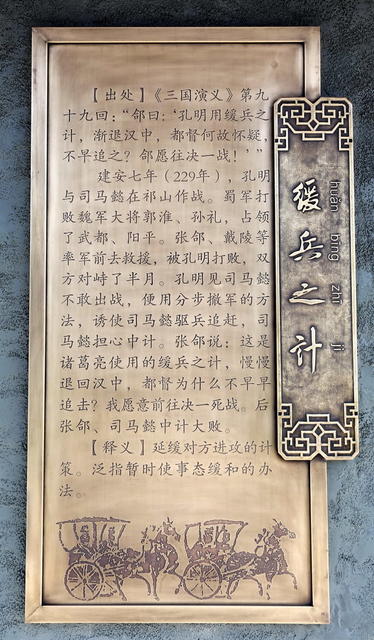 【出处】《三国演义》第九
十九回：“郃曰：‘孔明用缓兵之
计，渐退汉中，都督何故怀疑，
不早追之？郃愿往决一战！’”
建安七年（229年），孔明
与司马懿在祁山作战。蜀军打
败魏军大将郭淮、孙礼，占领
了武都、阳平。张郃、戴陵等
率军前去救援，被孔明打败，双
方对峙了半月。孔明见司马懿
不敢出战，便用分步撤军的方
法，诱使司马懿驱兵追赶，司
马懿担心中计。张郃说：这是
诸葛亮使用的缓兵之计，慢慢
退回汉中，都督为什么不早早
追击？我愿意前往决一死战。后
张郃、司马懿中计大败。
【释义】延缓对方进攻的计
策。泛指暂时使事态缓和的办
法。
缓兵之计
huǎn bīng zhī jì